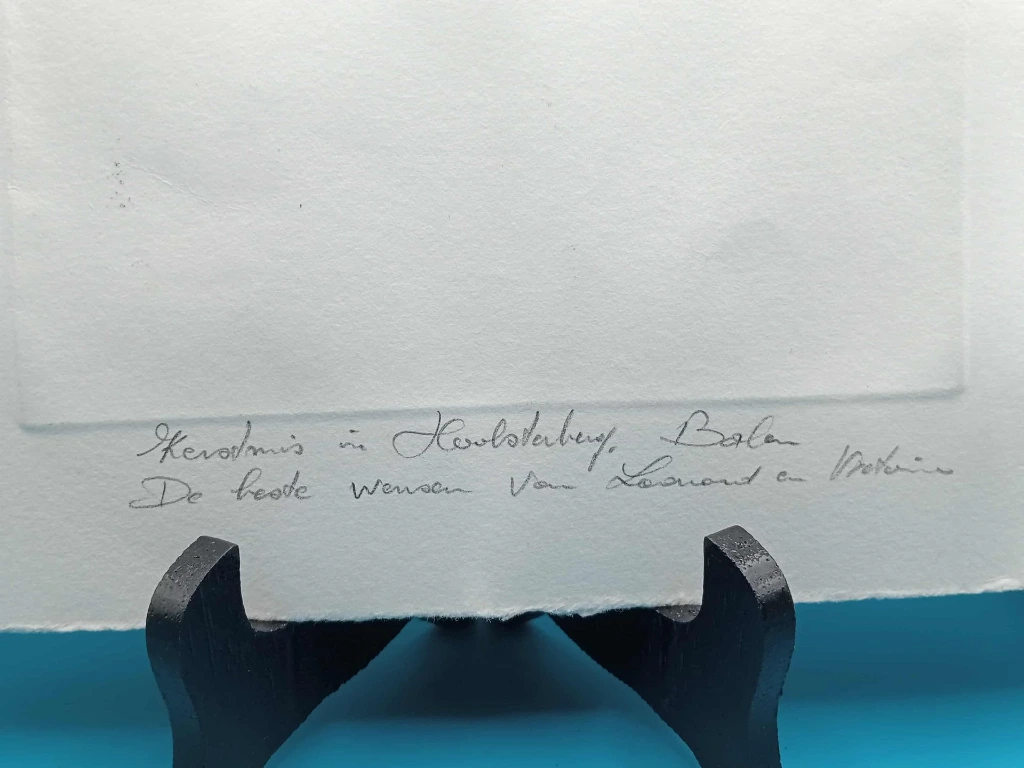 Kerstmis in Hoolsterberg, Balen
De beste wensen van Leonard en